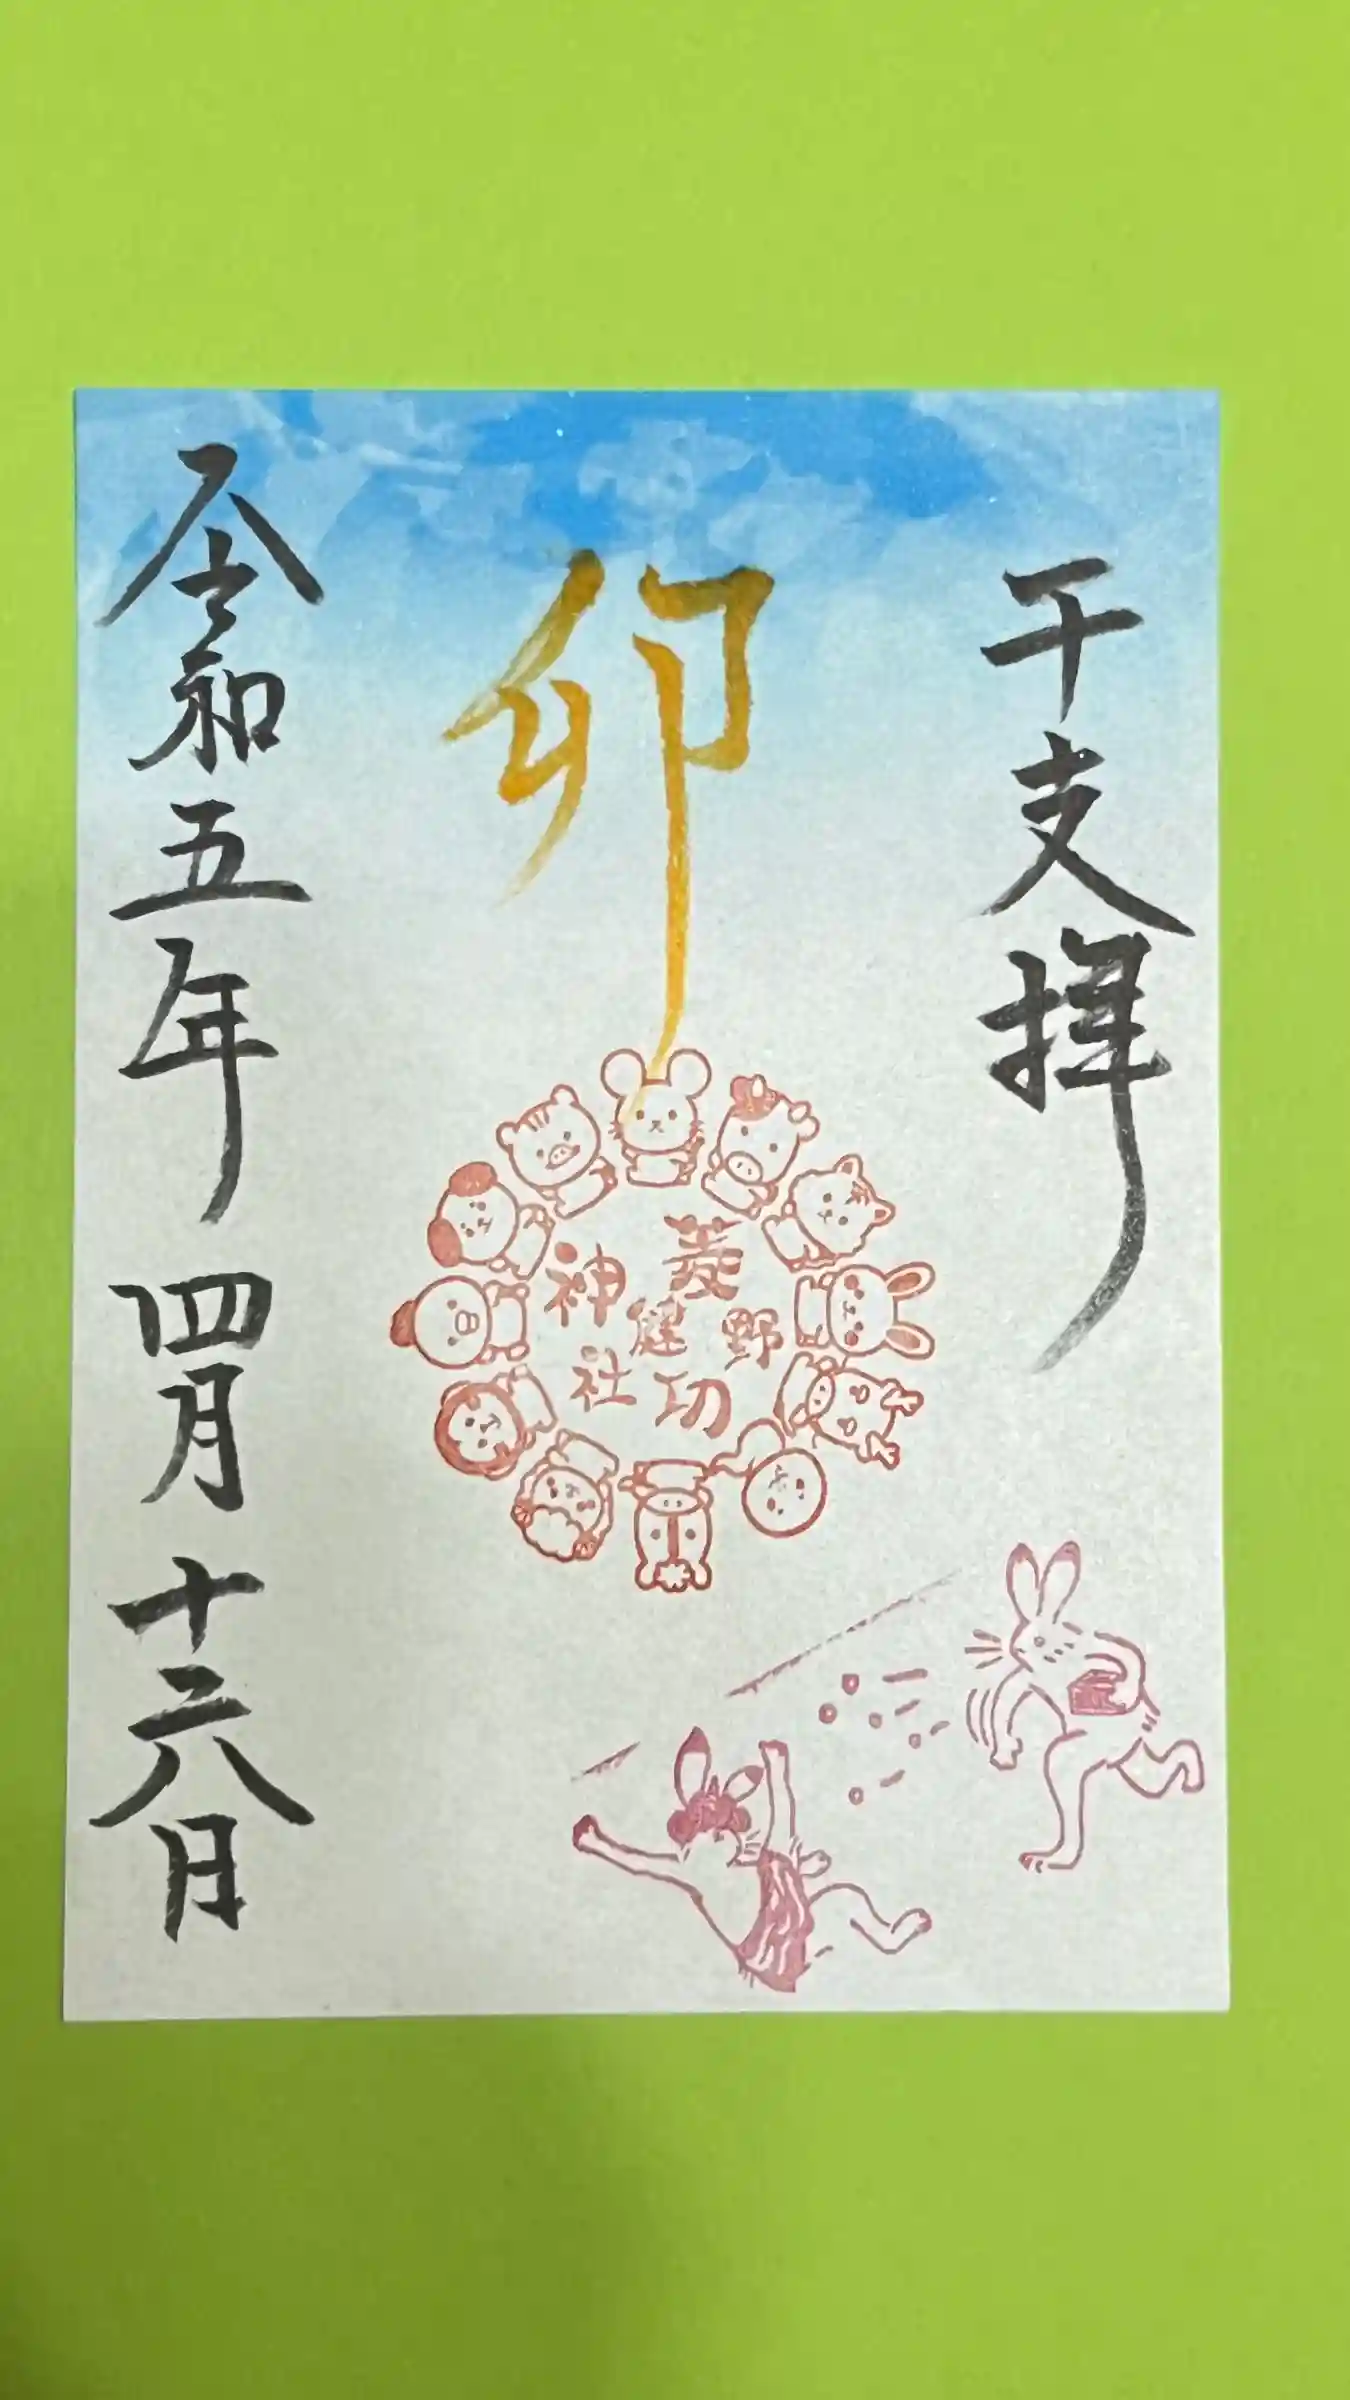 干支拝
卯
菱野健功神社
令和五年四月十六日